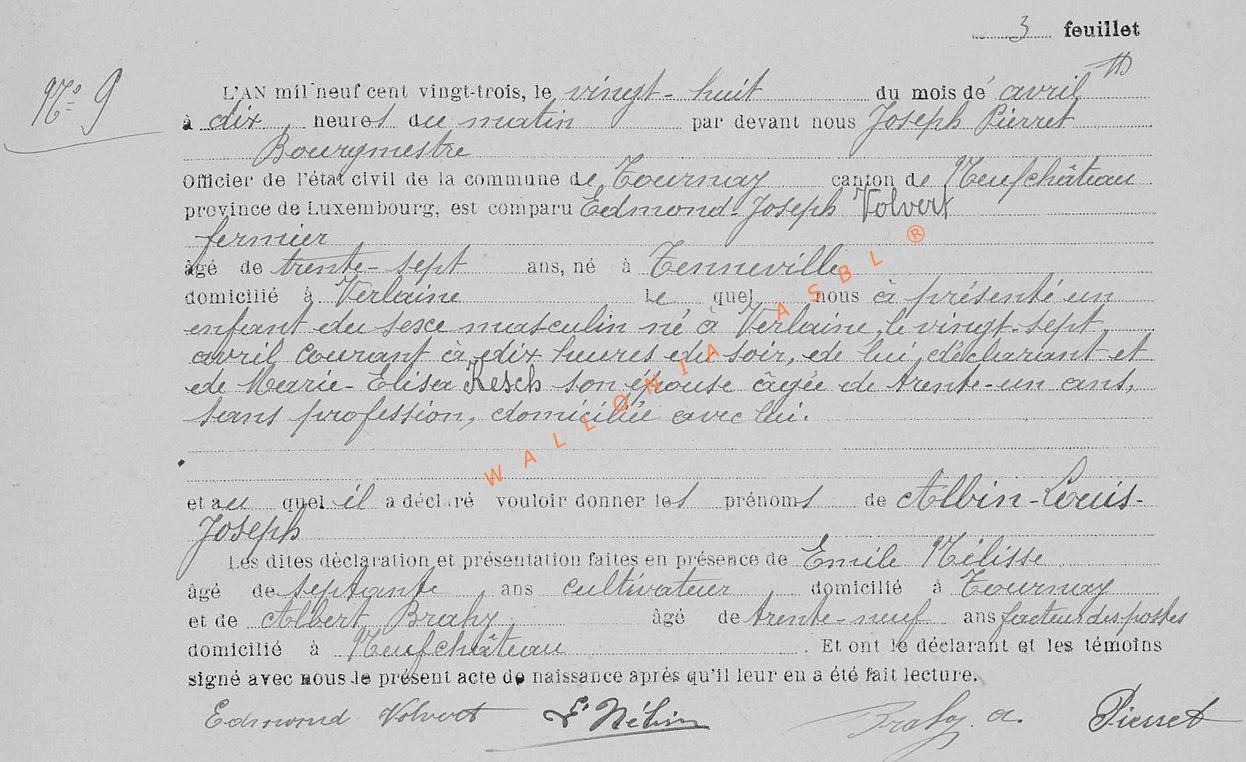 3 feuillet
N° 9
L'AN mil neuf cent vingt-trois, le vingt-huit du mois de avril
à dix heures du matin par devant nous Joseph Pierret
Bourgmestre
Officier de l'état civil de la commune de Tournay canton de Neufchâteau
province de Luxembourg, est comparu Edmond-Joseph Volvert
fermier
âgé de trente-sept ans, né à Tenneville
domicilié à Verlaine le quel nous à présenté un
enfant du sexe masculin né à Verlaine, le vingt-sept
avril courant à dix heures du soir, de lui déclarant et
de Marie-Elisa Kesch son épouse âgée de trente-un ans,
sans profession, domiciliée avec lui.
et au quel il a déclaré vouloir donner les prénoms de Albin-Louis-
Joseph
Les dites déclaration et présentation faites en présence de Emile Nélisse
âgé de septante ans cultivateur domicilié à Tournay
et de Albert Brahy âgé de trente-neuf ans facteur des postes
domicilié à Neufchâteau . Et ont le déclarant et les témoins
signé avec nous le présent acte de naissance après qu'il leur en a été fait lecture.
Edmond Volvert Brahy a. Pierret
WALLONIA ASBL ®